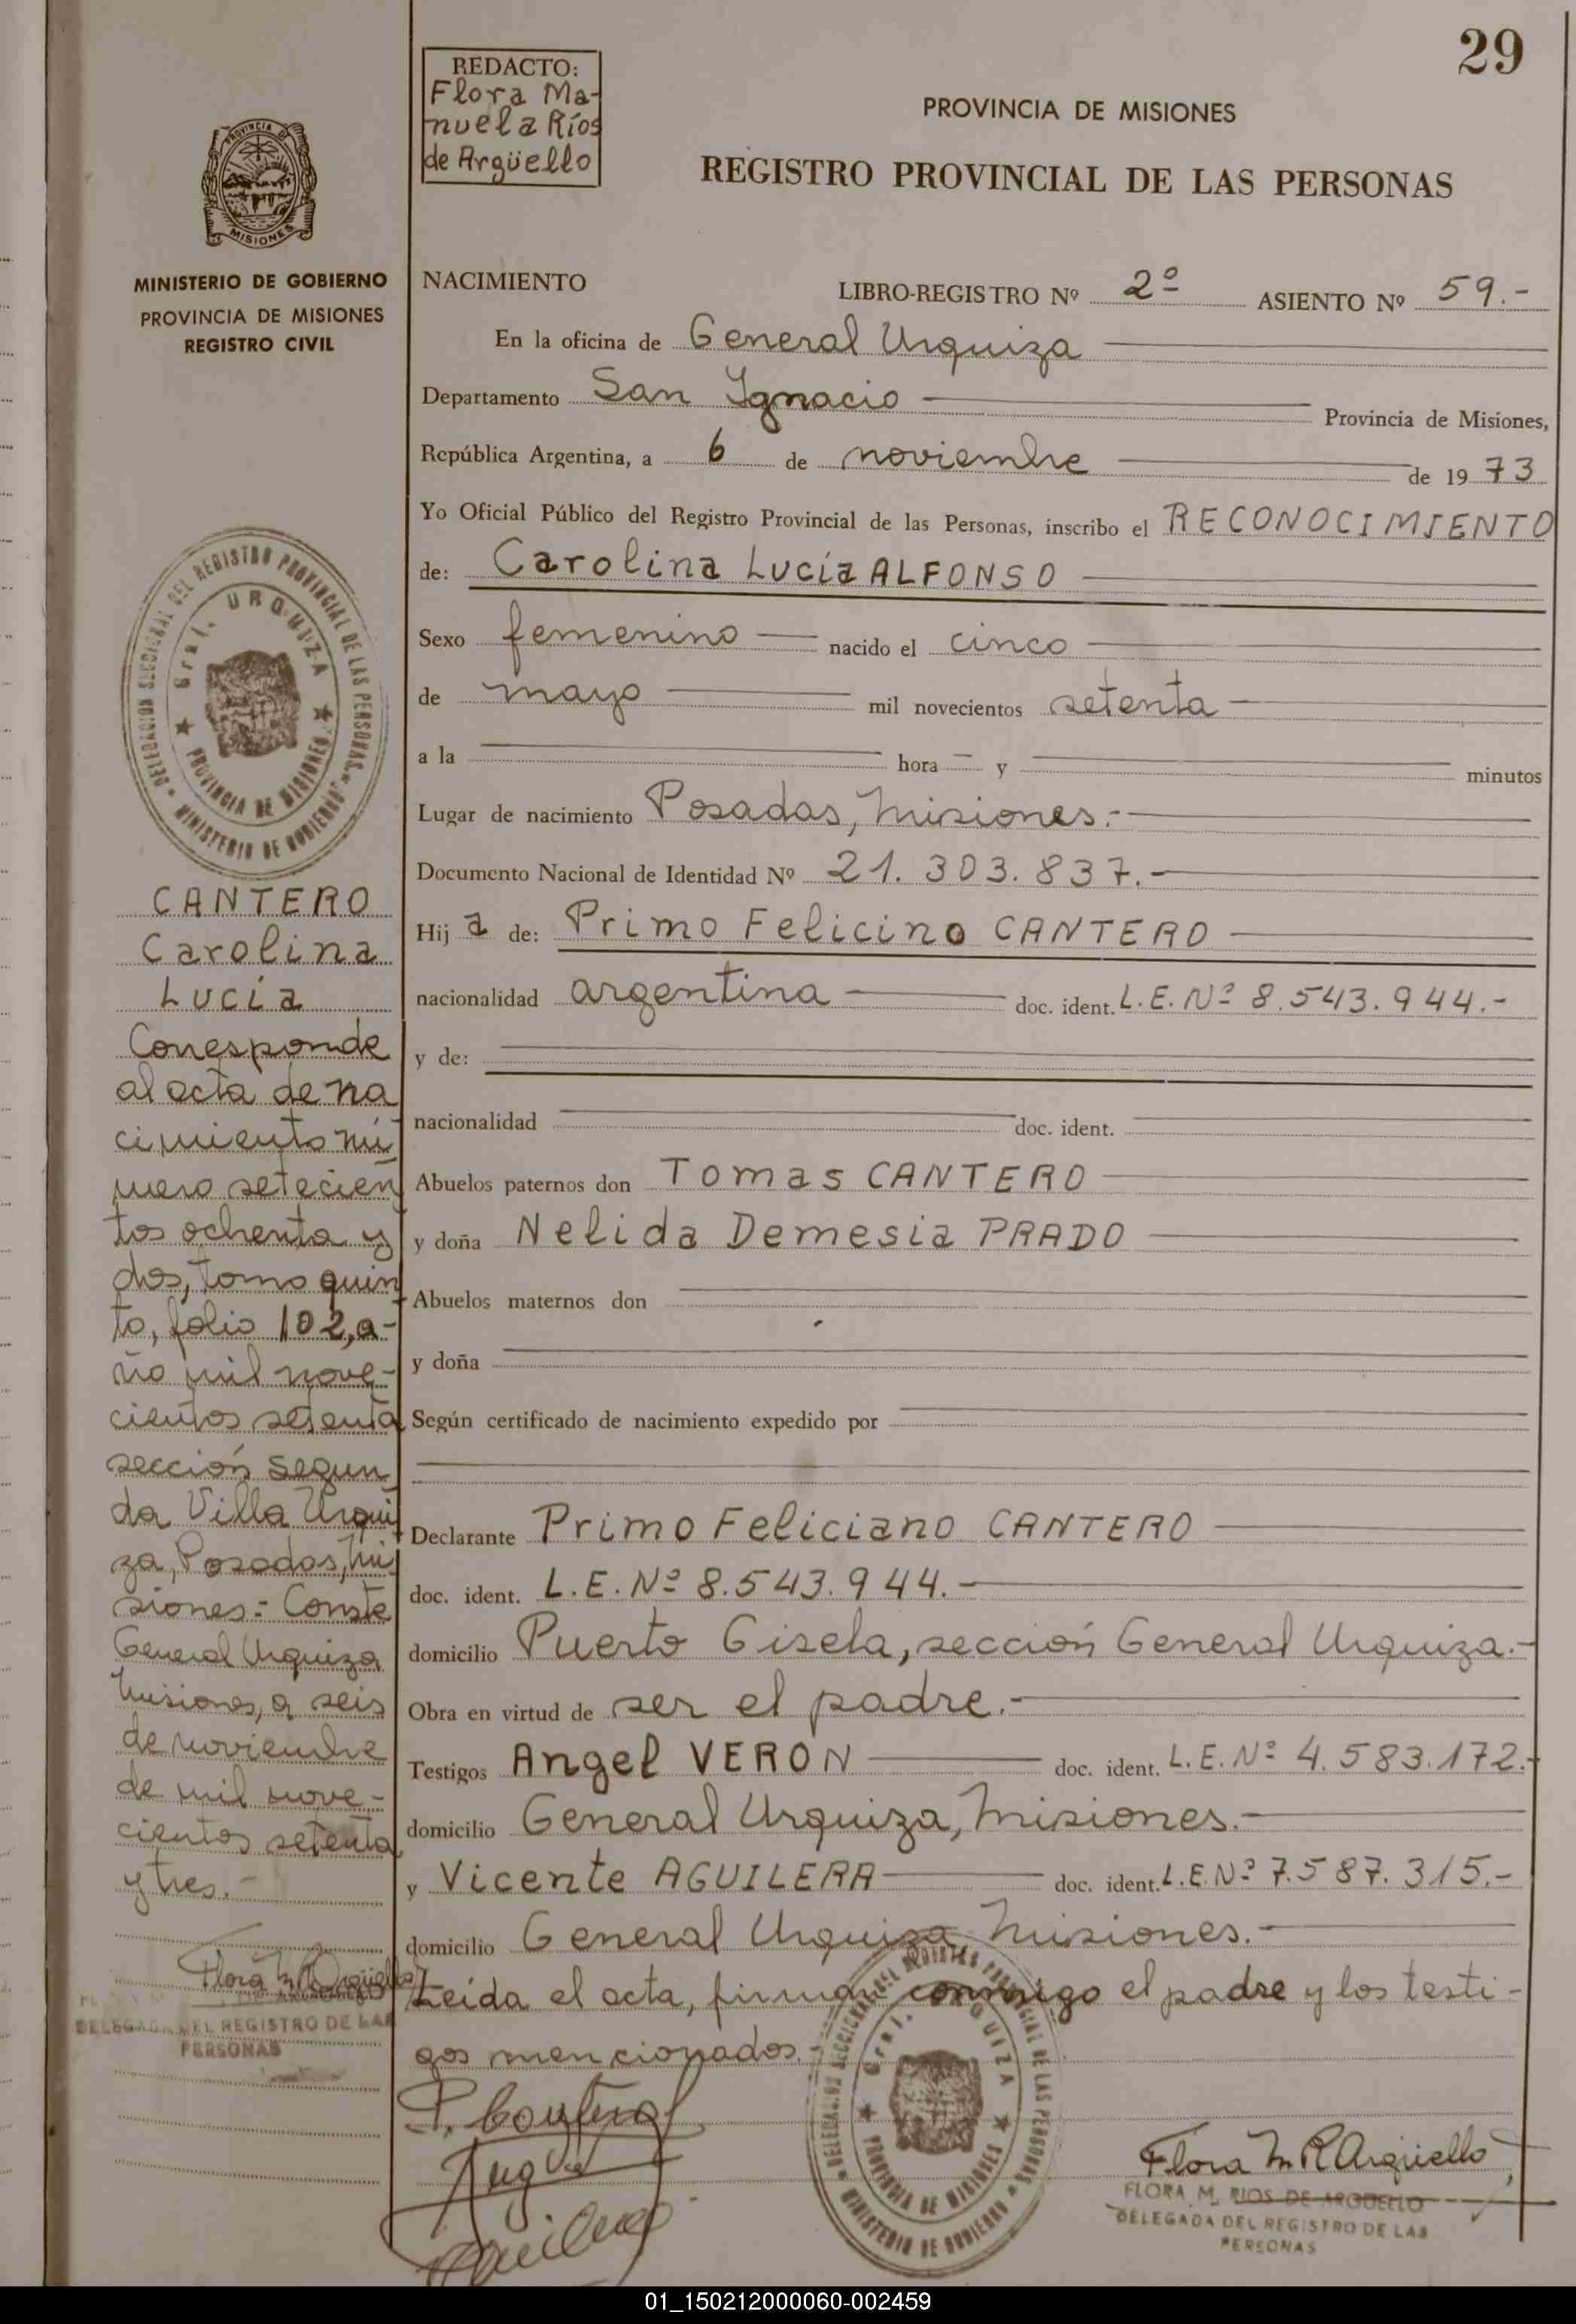 29
REDACTO:
Flora Ma-
nuela Ríos
de Argüello
PROVINCIA DE MISIONES
REGISTRO PROVINCIAL DE LAS PERSONAS
PROVINCIA DE
MISIONES
MINISTERIO DE GOBIERNO
PROVINCIA DE MISIONES
REGISTRO CIVIL
NACIMIENTO LIBRO-REGISTRO Nº 2º ASIENTO Nº 59.-
En la oficina de General Urquiza
Departamento San Ignacio Provincia de Misiones,
República Argentina, a 6 de noviembre de 1973
Yo Oficial Público del Registro Provincial de las Personas, inscribo el RECONOCIMIENTO
de: Carolina Lucía ALFONSO
Sexo femenino nacido el cinco
de mayo mil novecientos setenta
a la hora y minutos
Lugar de nacimiento Posadas, Misiones.-
Documento Nacional de Identidad Nº 21.303.837.-
Hija de: Primo Felicino CANTERO
nacionalidad argentina doc. ident. L.E.Nº 8.543.944.-
y de:
nacionalidad doc. ident.
Abuelos paternos don Tomas CANTERO
y doña Nelida Demesia PRADO
Abuelos maternos don
y doña
Según certificado de nacimiento expedido por
Declarante Primo Feliciano CANTERO
doc. ident. L.E.Nº 8.543.944.-
domicilio Puerto Gisela, sección General Urquiza.-
Obra en virtud de ser el padre.-
Testigos Angel VERON doc. ident. L.E.Nº 4.583.172.-
domicilio General Urquiza, Misiones.-
y Vicente AGUILERA doc. ident. L.E.Nº 7.587.315.-
domicilio General Urquiza, Misiones.-
Leída el acta, firman conmigo el padre y los testi-
gos mencionados.-
Flora M R Argüello
FLORA M. RIOS DE ARGUELLO
DELEGADA DEL REGISTRO DE LAS
PERSONAS
DELEGACION SECCIONAL DEL REGISTRO PROVINCIAL DE LAS PERSONAS
MINISTERIO DE GOBIERNO
Gral. URQUIZA
PROVINCIA DE MISIONES
CANTERO
Carolina
Lucía
Corresponde
al acta de na
cimiento nú
mero setecien
tos ochenta y
dos, tomo quin
to, folio 102, a-
ño mil nove-
cientos setenta
sección segun
da Villa Urqui
za, Posadas, Mi
siones.- Conste
General Urquiza
Misiones, a seis
de noviembre
de mil nove-
cientos setenta
y tres.-
Flora M R Argüello
DELEGADA DEL REGISTRO DE LAS
PERSONAS
DELEGACION SECCIONAL DEL REGISTRO PROVINCIAL DE LAS PERSONAS
MINISTERIO DE GOBIERNO
Gral. URQUIZA
PROVINCIA DE MISIONES
01_150212000060-002459